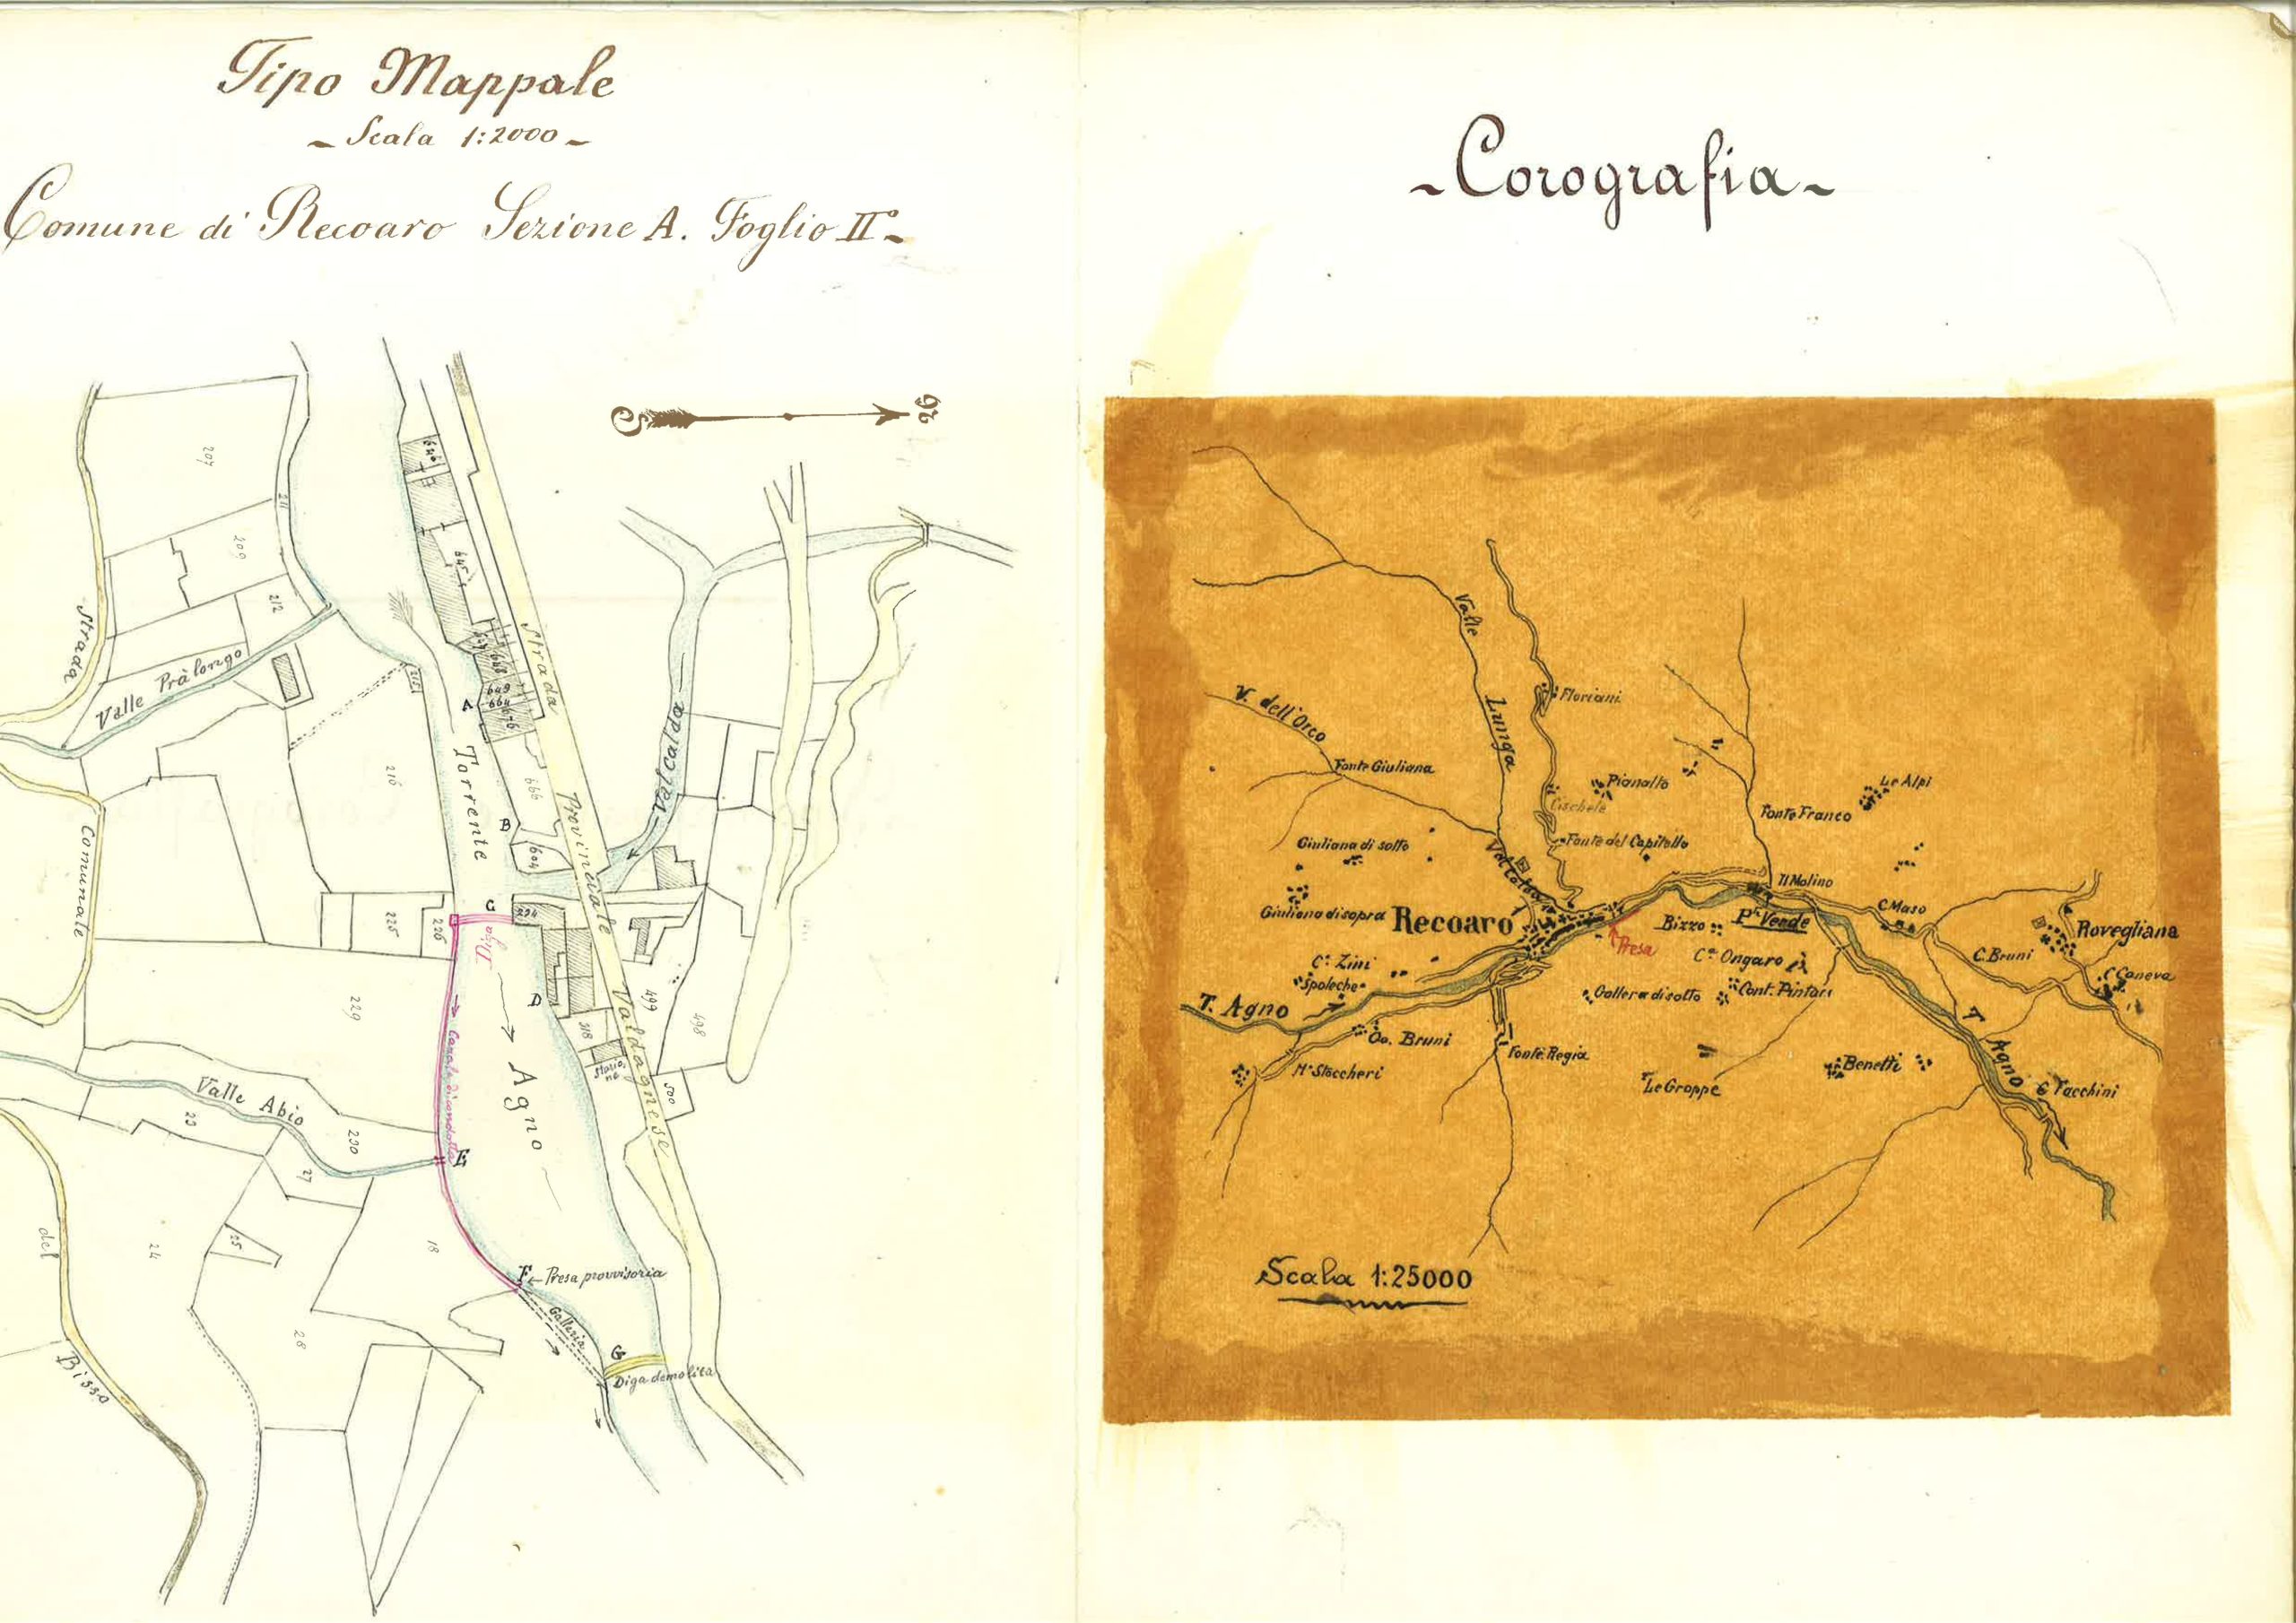 Tipo Mappale
- Scala 1:2000 -
Comune di Recoaro Sezione A. Foglio II° -
S
N
207
211
209
212
Strada
Valle Pràlongo
215
216
646
645
647
648
649
664
676
A
Torrente
666
B
604
Strada
Provinciale
Valdagnese
Valcalda
Comunale
225
226
C
234
Diga
D
318
499
498
500
229
Canale di condotta
Agno
Valle Abio
29
230
27
E
del
24
25
18
28
F
Presa provvisoria
Galleria
G
Diga demolita
Bisso
- Corografia -
Valle
Lunga
Floriani
V. dell'Orco
Fonte Giuliana
Pianalto
Cischele
Le Alpi
Fonte Franco
Giuliana di sotto
Fonte del Capitello
Valcalda
Il Molino
Giuliana di sopra
Recoaro
Presa
Bizzo
Pte Verde
C. Maso
Rovegliana
C. Bruni
C. Caneva
Ca Zini
Ca Ongaro
Spoleche
Gallera di sotto
Cont. Pintari
T. Agno
Oo. Bruni
Fonte Regia
T. Agno
Mo Stoccheri
Le Groppe
Benetti
G Facchini
Scala 1:25000